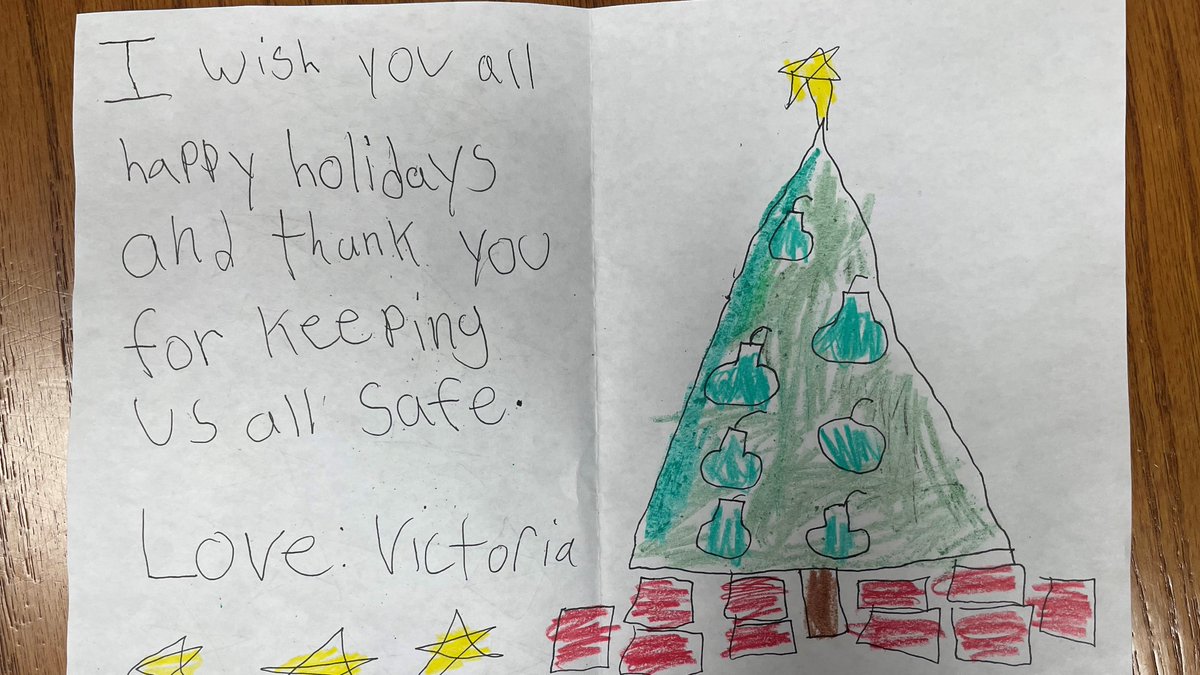 I wish you all
happy holidays
and thank you
for keeping
us all safe.
Love: Victoria